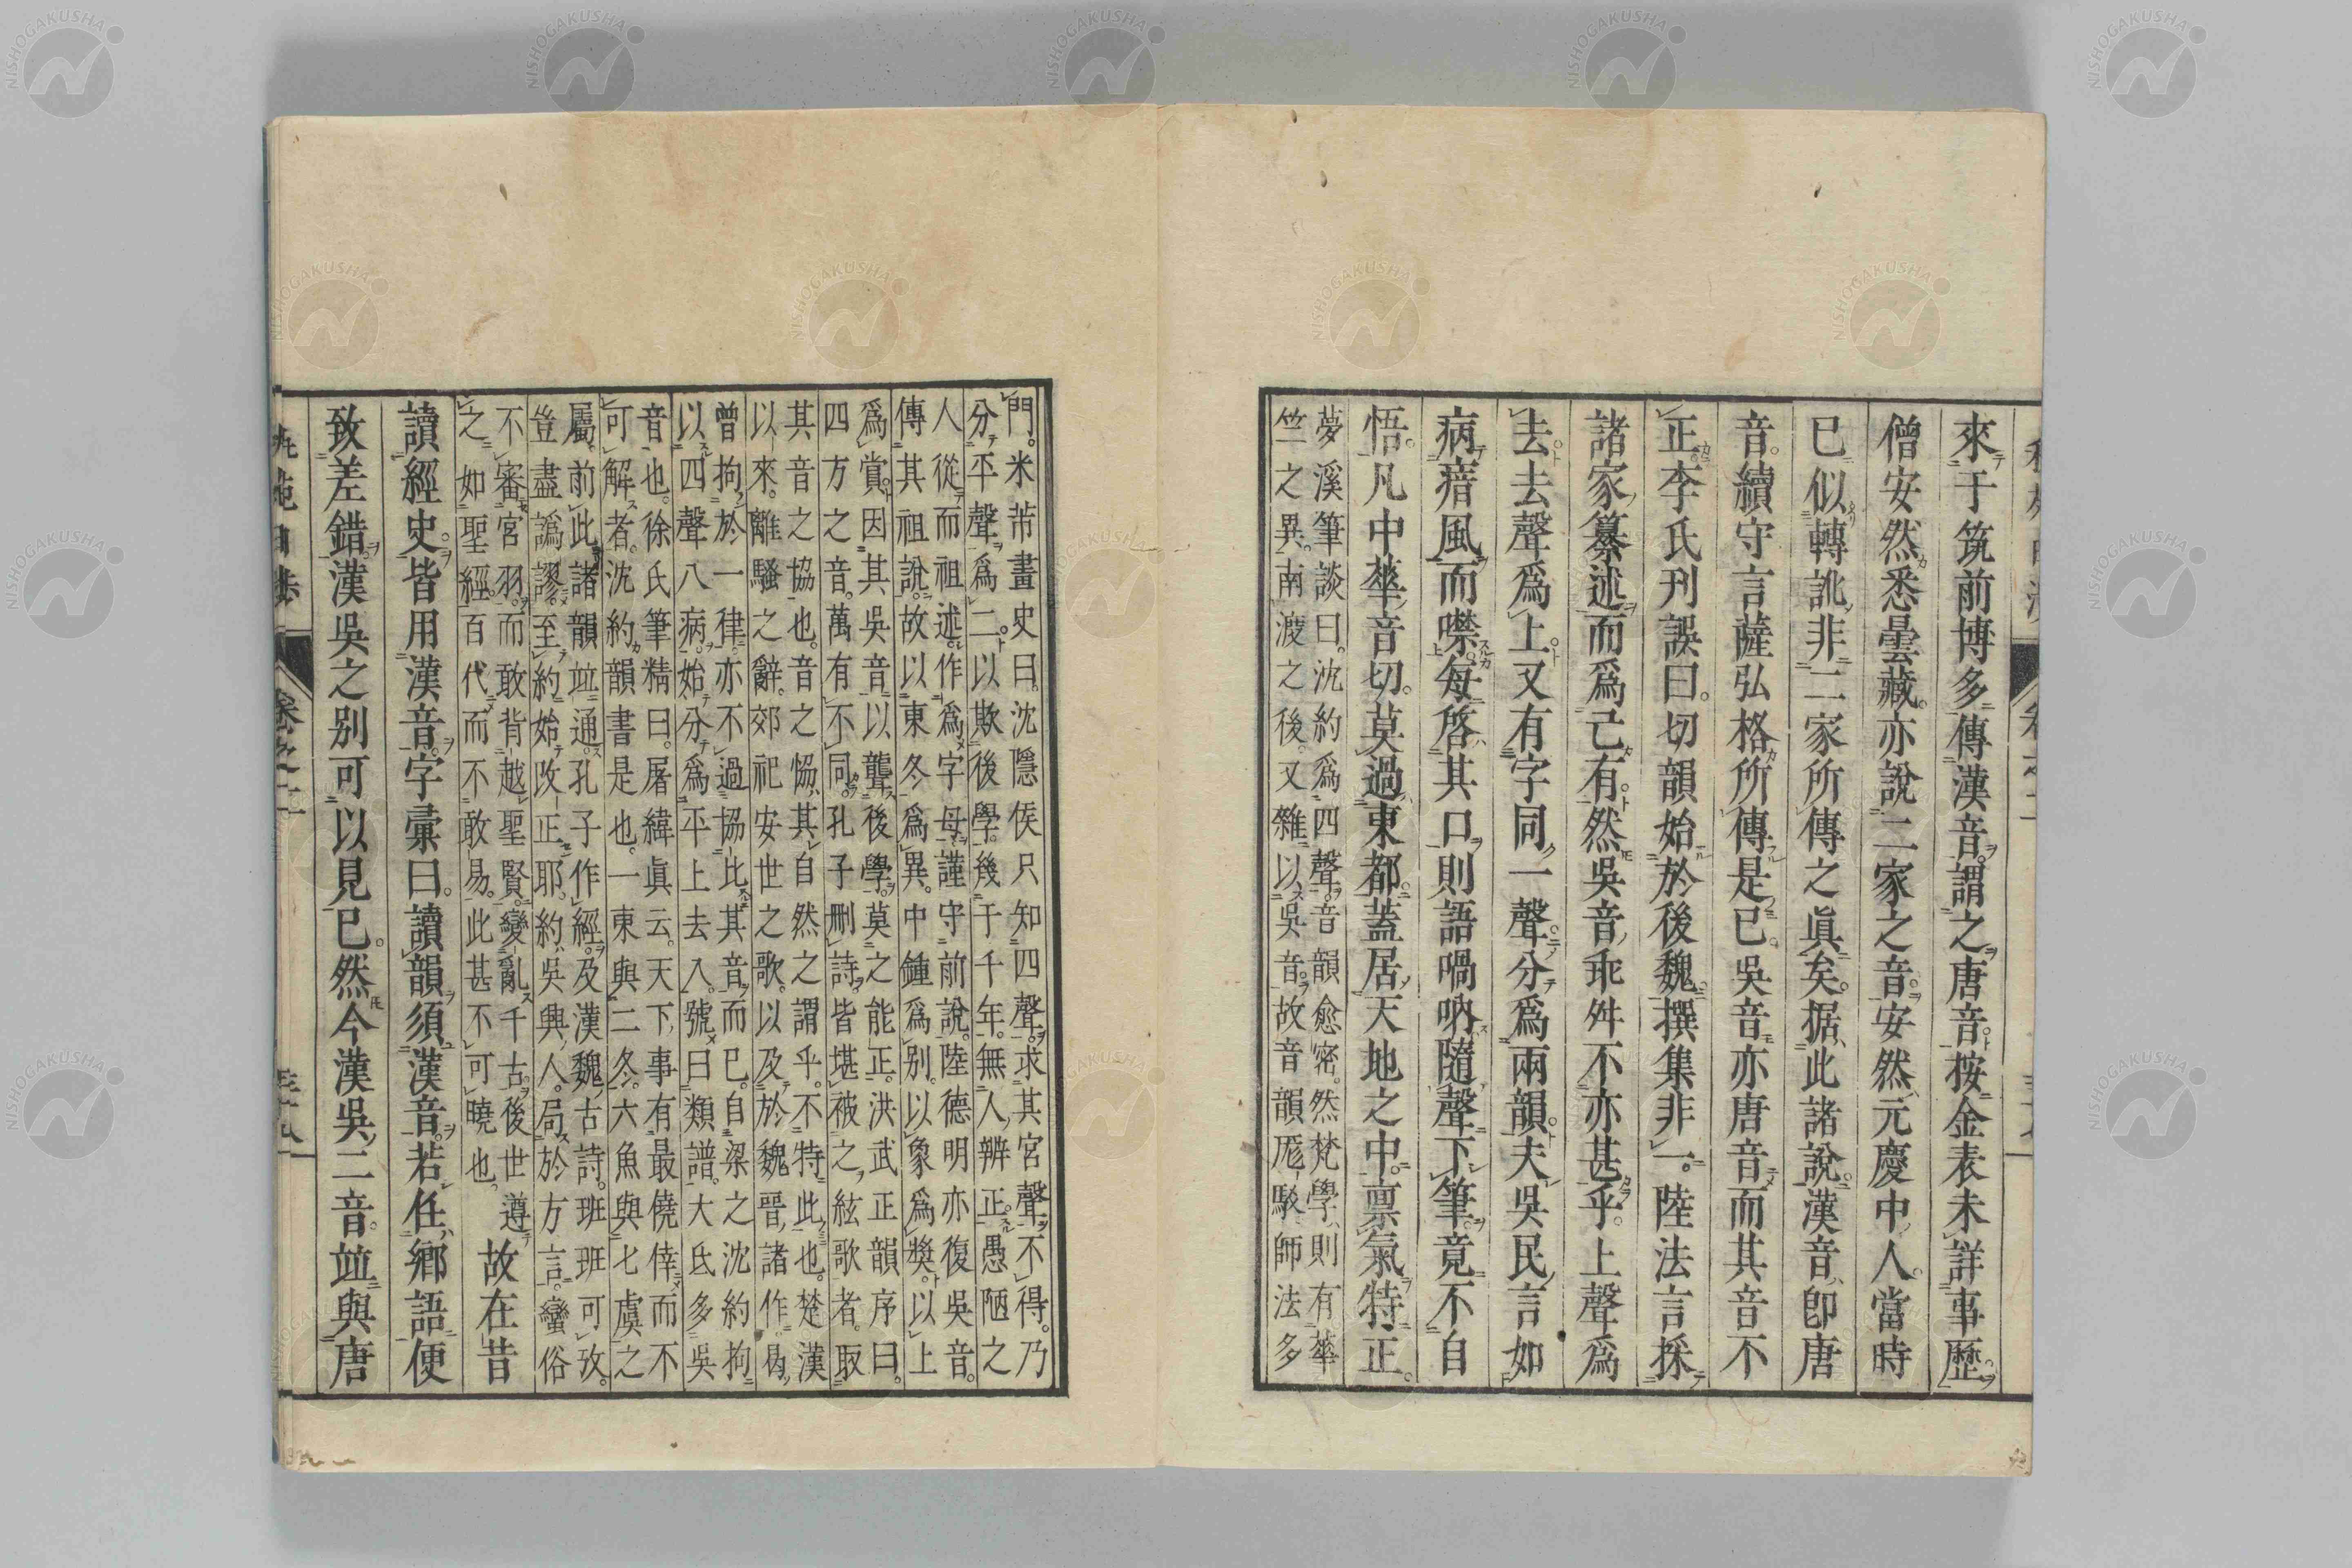 來于筑前博多傳漢音謂之唐音按金表未詳事歷
僧安然悉曇藏亦說二家之音安然元慶中人當時
已似轉訛非二家所傳之眞矣据此諸說漢音卽唐
音續守言薩弘格所傳是已吳音亦唐音而其音不
正李氏刋誤曰切韻始於後魏撰集非一陸法言採
諸家纂述而爲己有然吳音乖舛不亦甚乎上聲爲
去去聲爲上又有字同一聲分爲兩韻夫吳民言如
病瘖風而噤每啓其口則語喎吶隨聲下筆竟不自
悟凡中華音切莫過東都蓋居天地之中禀氣特正
夢溪筆談曰沈約爲四聲音韻愈密然梵學則有華
竺之異南渡之後又雜以吳音故音韻厖駁師法多
門米芾畫史曰沈隱侯只知四聲求其宮聲不得乃
分平聲爲二以欺後學幾于千年無人辨正愚陋之
人從而祖述作爲字母謹守前說陸德明亦復吳音
傳其祖說故以東冬爲異中鍾爲別以象爲獎以上
爲賞因其吳音以聾後學莫之能正洪武正韻序曰
四方之音萬有不同孔子刪詩皆堪被之絃歌者取
其音之協也音之恊其自然之謂乎不特此也楚漢
以來離騷之辭郊祀安世之歌以及於魏晉諸作曷
曾拘於一律亦不過協比其音而已自梁之沈約拘
以四聲八病始分爲平上去入號曰類譜大氐多吳
音也徐氏筆精曰屠緯眞云天下事有最僥倖而不
可解者沈約韻書是也一東與二冬六魚與七虞之
屬前此諸韻竝通孔子作經及漢魏古詩班班可攷
豈盡譌謬至約始攺正耶約吳興人局於方言蠻俗
不審宮羽而敢背越聖賢變亂千古後世遵
之如聖經百代而不敢易此甚不可曉也
故在昔
讀經史皆用漢音字彙曰讀韻須漢音若任鄉語便
致差錯漢吳之別可以見已然今漢吳二音竝與唐